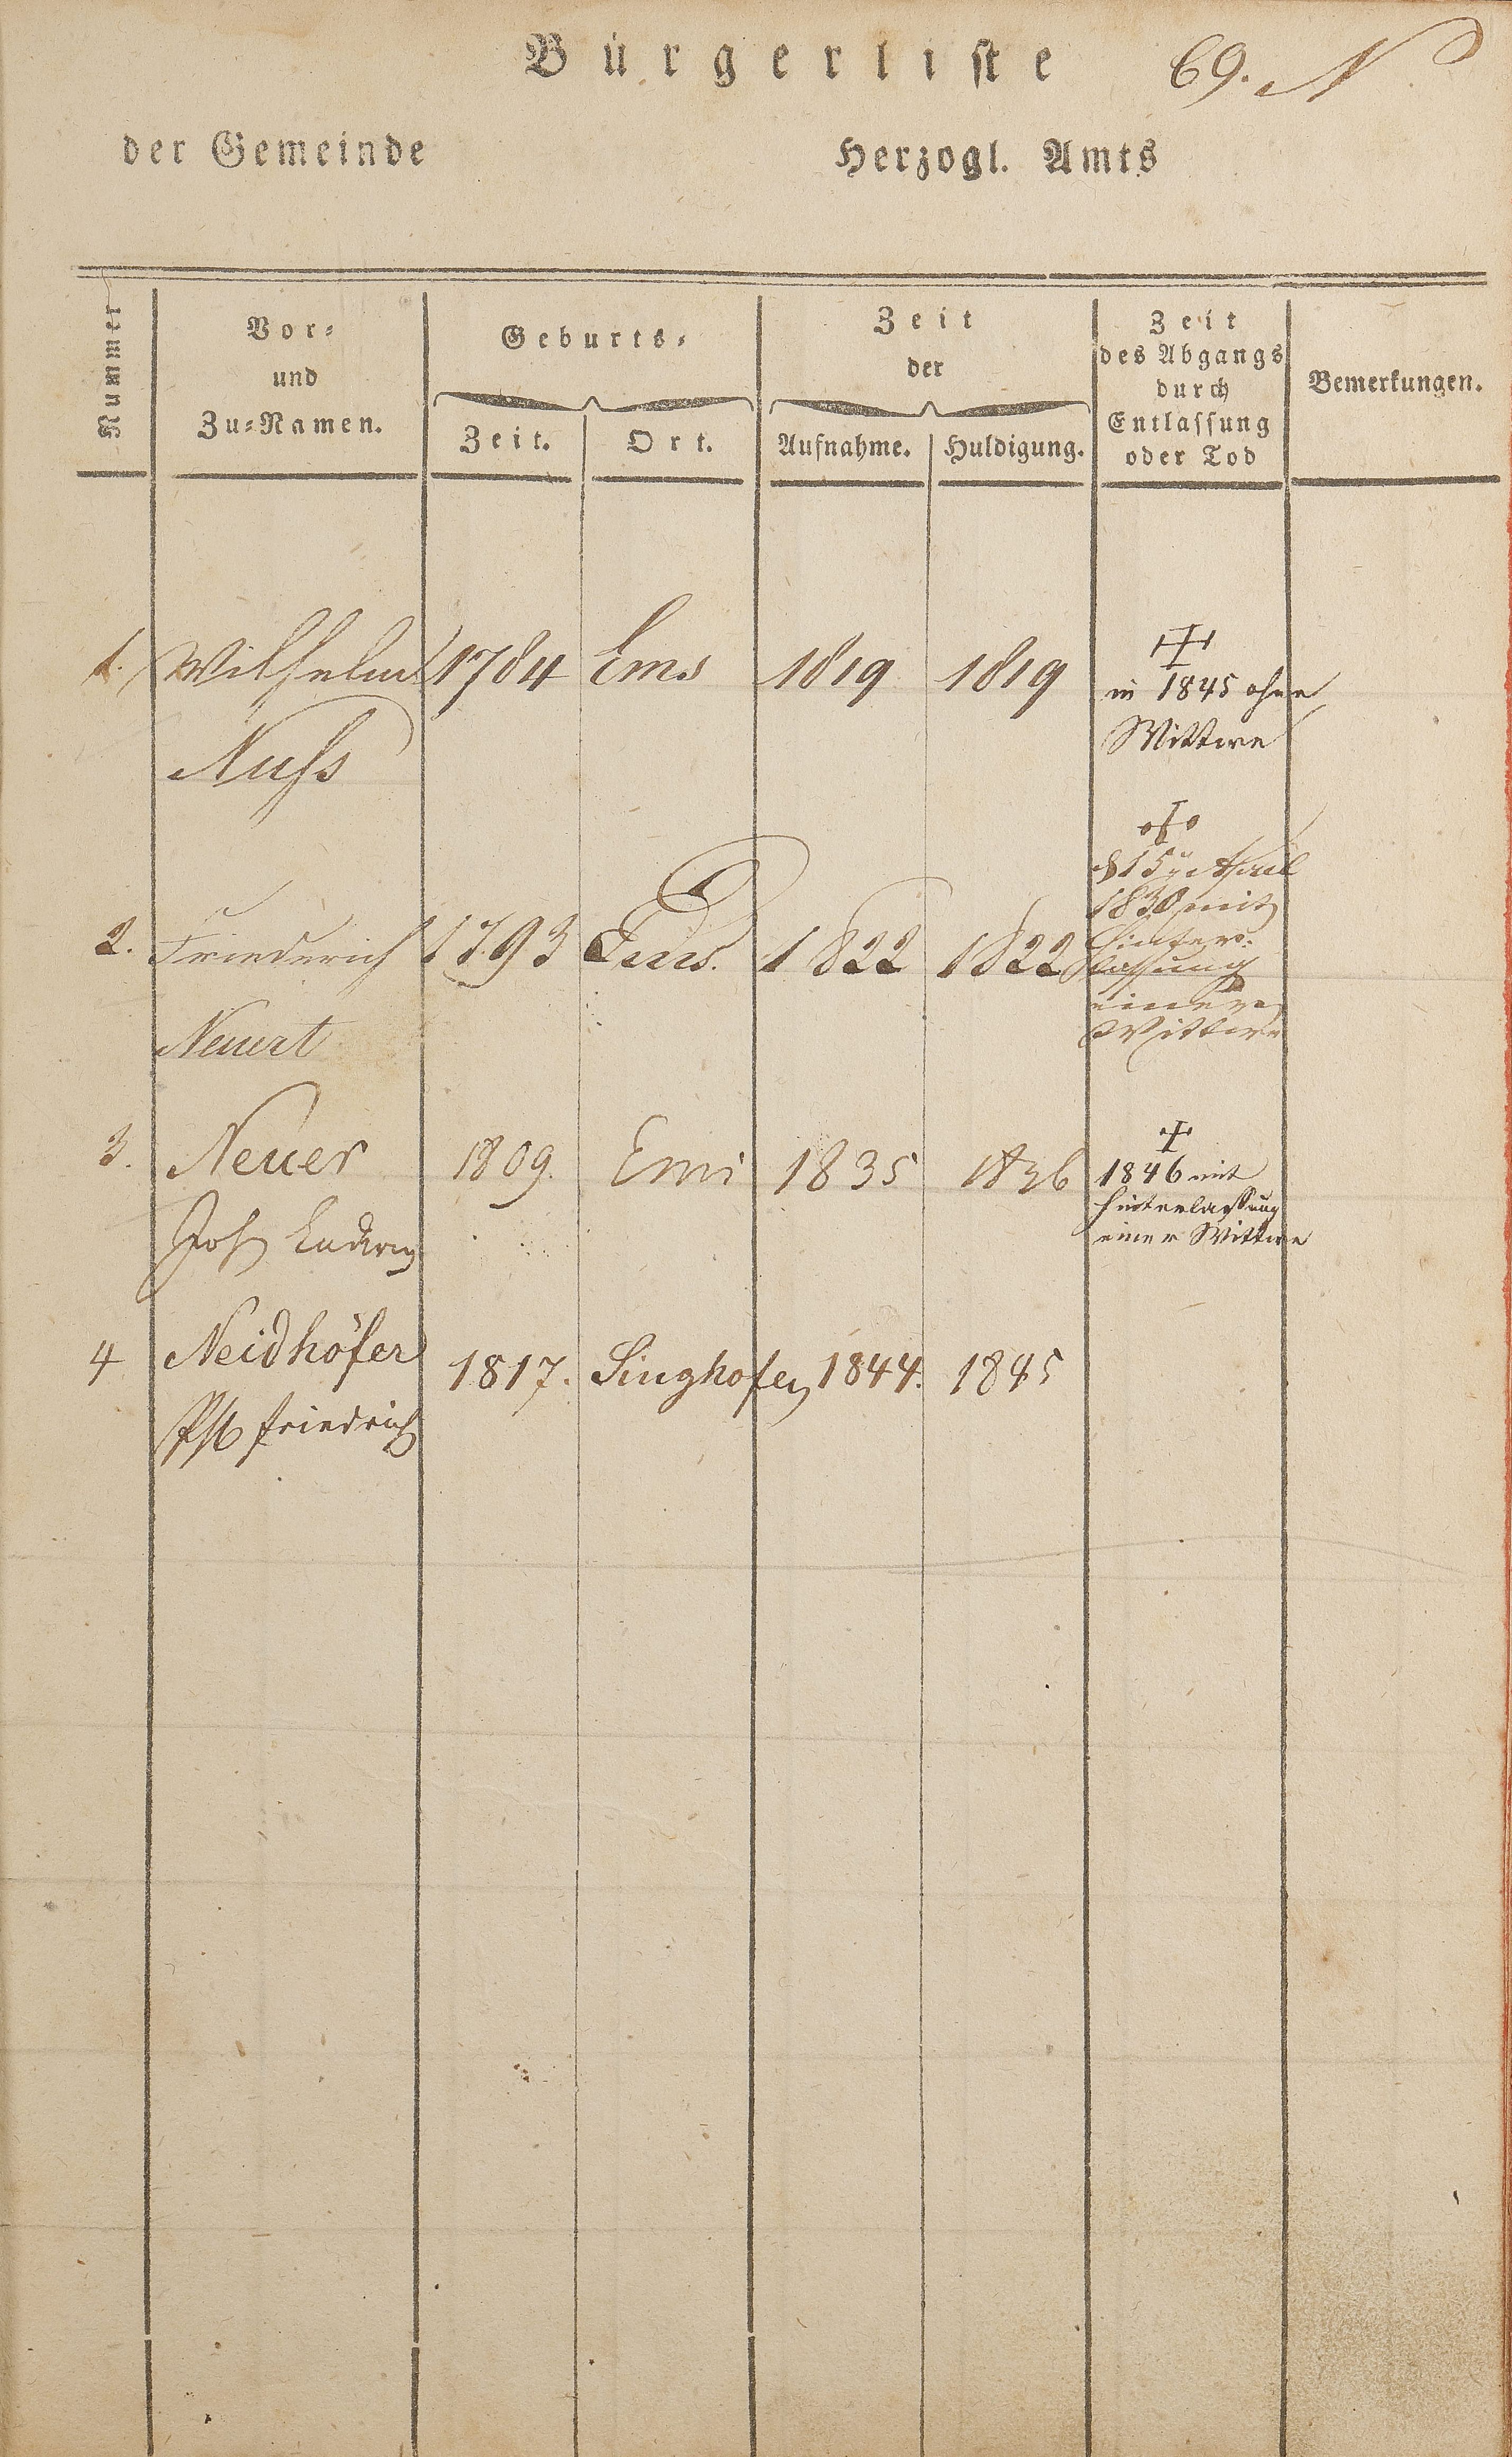 Bürgerliste 69. N
der Gemeinde Herzogl. Amts
Nummer
Vor-
und
Zu-Namen.
Geburts-
Zeit. Ort.
Zeit
der
Aufnahme. Huldigung.
Zeit
des Abgangs
durch
Entlassung
oder Tod
Bemerkungen.
1. Wilhelm 1784 Ems 1819 1819
Nuss
in 1845 ohne
Wittwe
2. Friederich 1793 Ems. 1822 1822
Neuert
15 April
1830 mit
Hinter-
lassung
einer
Wittwe
3. Neuer 1809. Ems 1835 1836
Joh Ludwig
1846 mit
Hinterlassung
einer Wittwe
4 Neidhöfer 1817. Singhofen 1844. 1845
Friedrich